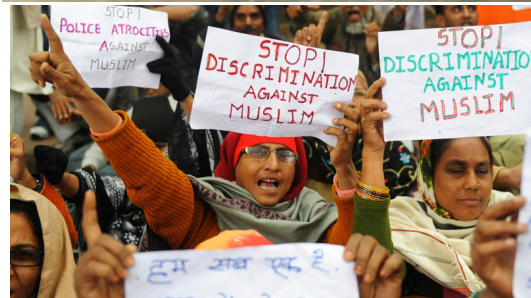 STOP!
POLICE ATROCITIES
AGAINST
MUSLIM
STOP!
DISCRIMINATION
AGAINST
MUSLIM
STOP!
DISCRIMINATION
AGAINST
MUSLIM
हम सब एक है